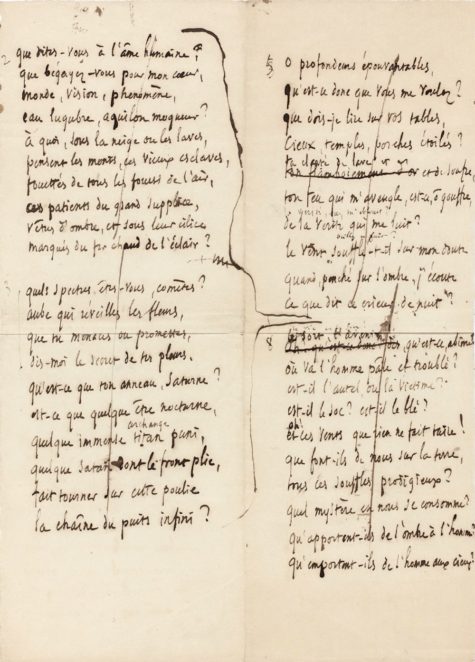 2
que dites-vous à l'âme humaine ?
que bégayez-vous pour mon cœur,
monde, vision, phénomène,
eau lugubre, aquilon moqueur ?
à quoi, sous la neige ou les laves,
pensent les monts, ces vieux esclaves,
fouettés de tous les fouets de l'air,
ces patients du grand supplice,
vêtus d'ombre, et sous leur cilice
marqués du fer chaud de l'éclair ?
3
quels spectres êtes-vous, comètes ?
aube qui réveilles les fleurs,
que tu menaces ou promettes,
dis-moi le secret de tes pleurs.
qu'est-ce que ton anneau, Saturne ?
est-ce que quelque être nocturne,
archange
quelque immense titan puni,
quelque Satan dont le front plie,
fait tourner sur cette poulie
la chaîne du puits infini ?
O profondeurs épouvantables,
qu'est-ce donc que vous me voulez ?
que dois-je lire sur vos tables,
Cieux, temples, porches étoilés ?
ta clarté de lave
or et de soufre,
ton feu qui m'aveugle, est-ce, ô gouffre,
de la vérité qui me fuit ?
le vent souffle-t-il sur mon doute
quand, penché sur l'ombre, j'écoute
ce que dit ce crieur de nuit ?
8
qu'est-ce, abîme
où va l'homme pâle et troublé ?
est-il l'autel ou la victime ?
est-il le soc ? est-il le blé ?
oh !
et ces vents que rien ne fait taire !
que font-ils de nous sur la terre,
tous ces souffles prodigieux ?
quel mystère en nous se consomme ?
qu'apportent-ils de l'ombre à l'homme
qu'emportent-ils de l'homme aux cieux ?